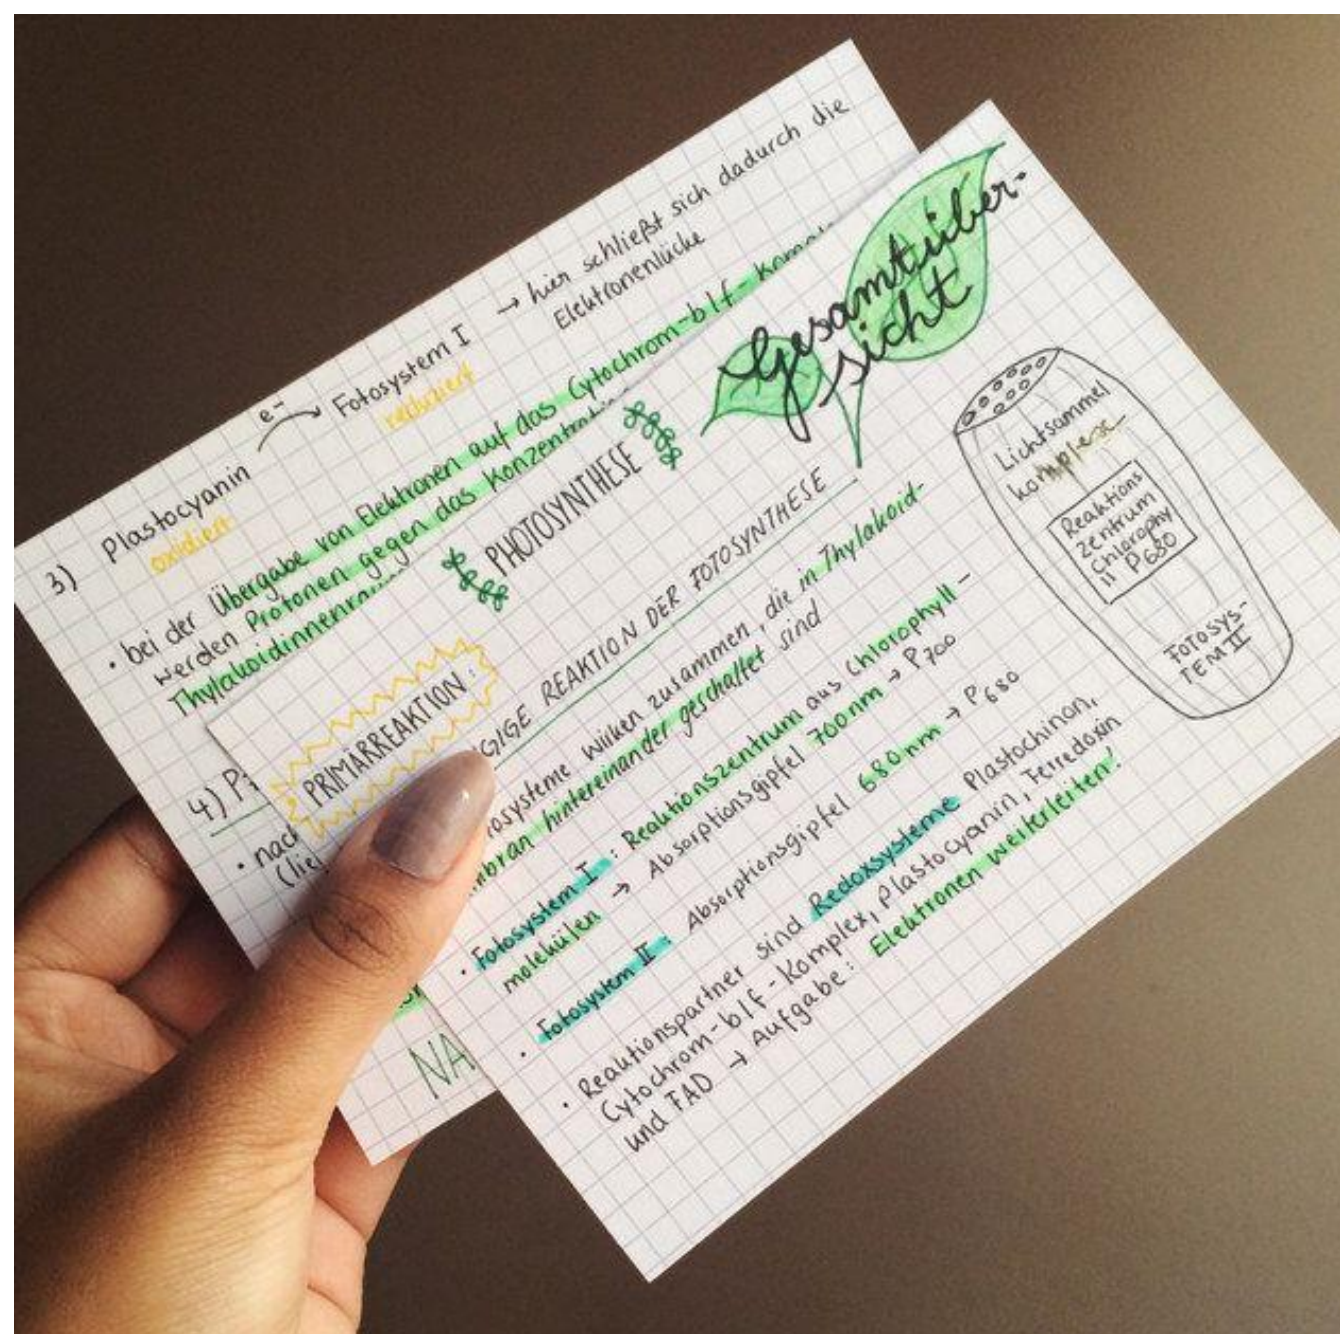 3) Plastocyanin e⁻ → Fotosystem I → hier schließt sich dadurch die
oxidiert reduziert Elektronenlücke
• bei der Übergabe von Elektronen auf das Cytochrom-b/f-
werden Protonen gegen das
4)
• nach
NA
Gesamtüber-
sicht
PHOTOSYNTHESE
PRIMÄRREAKTION:
REAKTION DER FOTOSYNTHESE
wirken zusammen, die in Thylakoid-
hintereinander geschaltet sind
• Fotosystem I: Reaktionszentrum aus Chlorophyll-
molekülen → Absorptionsgipfel 700nm → P700
• Fotosystem II: Absorptionsgipfel 680nm → P680
• Reaktionspartner sind Redoxsysteme Plastochinon,
Cytochrom-b/f-Komplex, Plastocyanin, Ferredoxin
und FAD → Aufgabe: Elektronen weiterleiten!
Lichtsammel
komplexe
Reaktions
zentrum
Chlorophy
ll P680
FOTOSYS-
TEM II